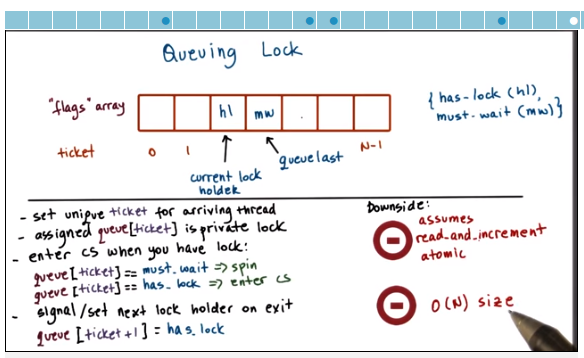 Queuing Lock
"flags" array
hl mw .
{has-lock (hl),
must-wait (mw)}
ticket 0 1 N-1
current lock
holder
queuelast
- set unique ticket for arriving thread
- assigned queue[ticket] is private lock
- enter cs when you have lock:
queue[ticket] == must_wait => spin
queue[ticket] == has_lock => enter cs
- signal/set next lock holder on exit
queue [ticket+1] = has_lock
Downside:
assumes
read_and_increment
atomic
O(N) size